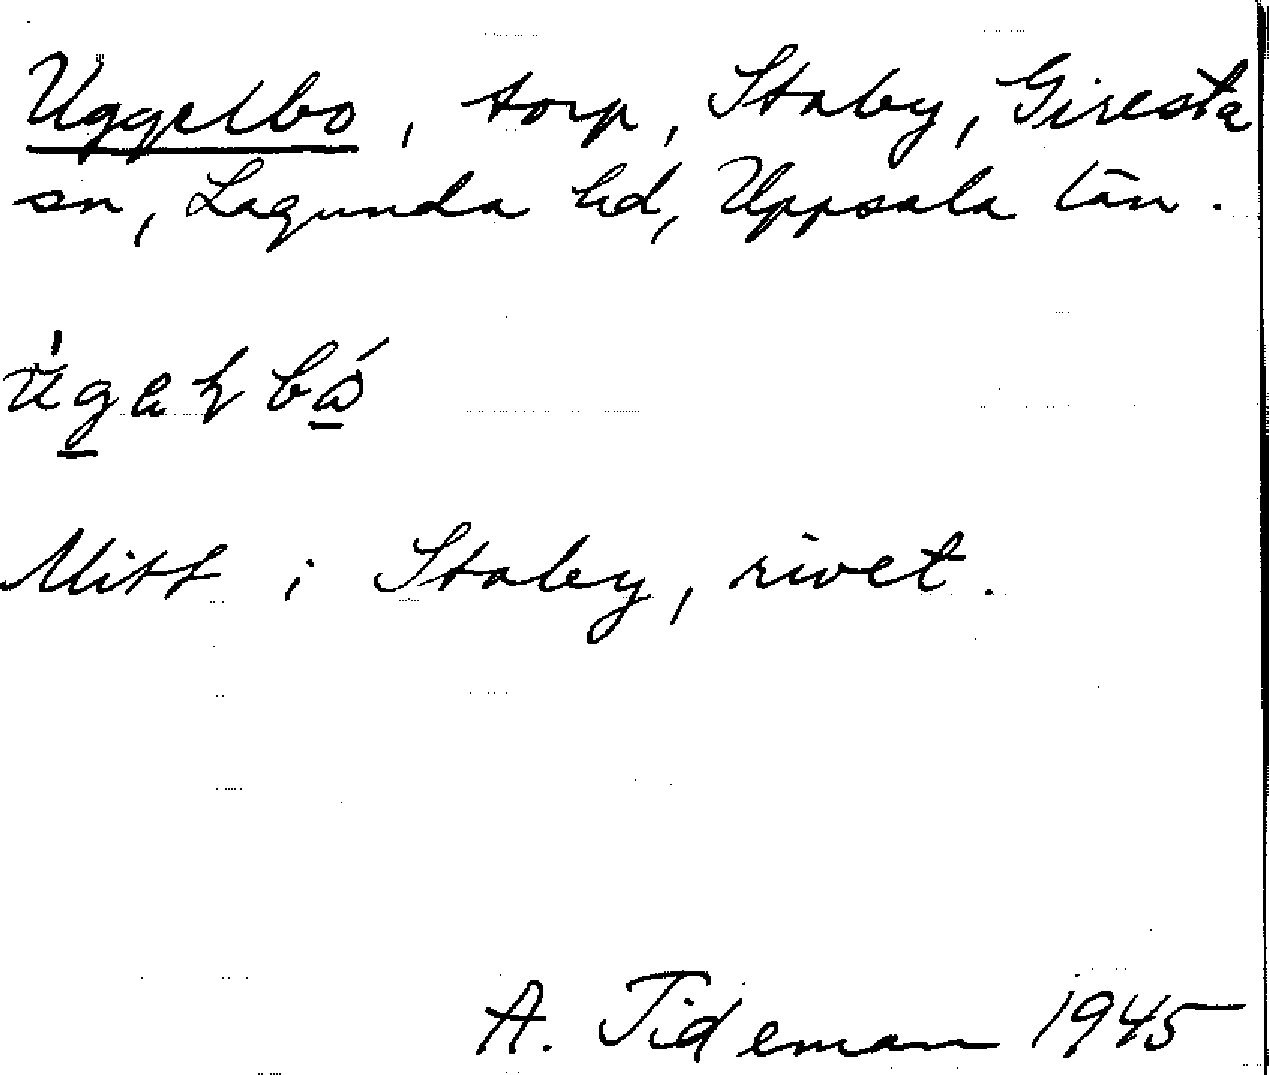 Uggelbo, torp, Staby, Giresta
sn, Lagunda hd, Uppsala län.
Mitt i Staby, rivet.
A. Tideman 1945